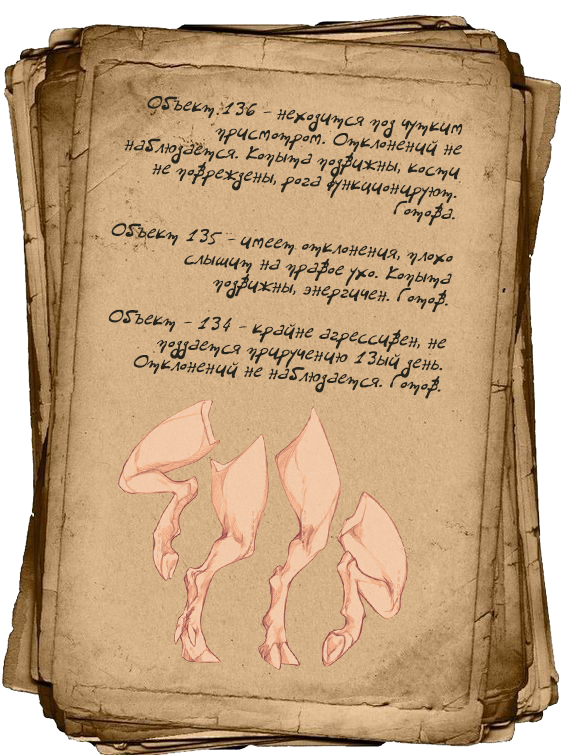 Объект 136 - неходится под чутким
присмотром. Отклонений не
наблюдается. Копыта подвижны, кости
не повреждены, рога функционируют.
Готова.
Объект 135 - имеет отклонения, плохо
слышит на правое ухо. Копыта
подвижны, энергичен. Готов.
Объект - 134 - крайне агрессивен, не
поддается приручению 13ый день.
Отклонений не наблюдается. Готов.